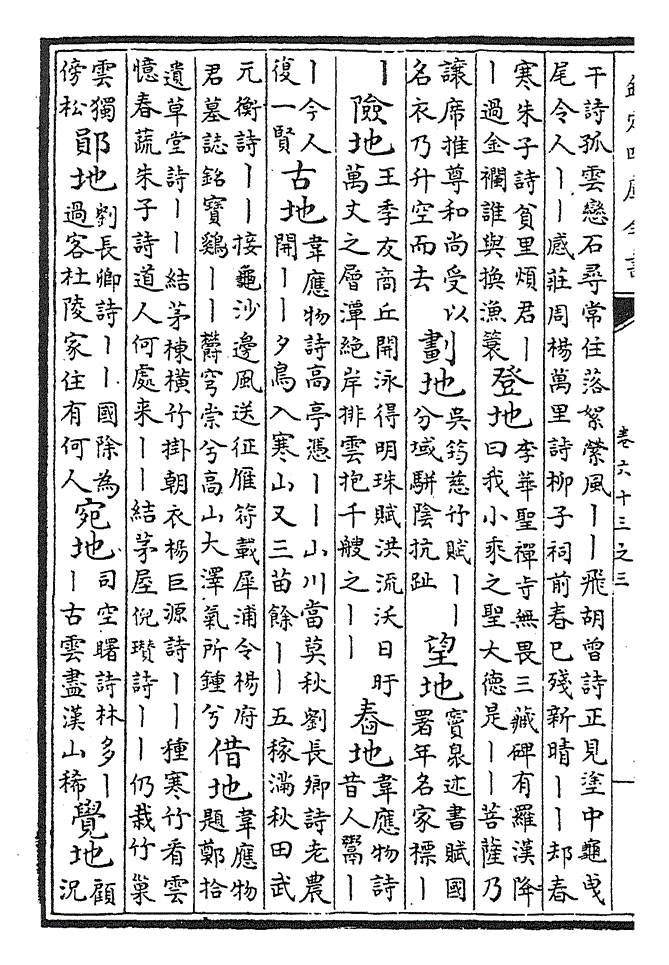 欽定四庫全書
卷六十三之三
干詩孤雲戀石尋常住落絮縈風丨丨飛胡曾詩正見塗中龜曳
尾令人丨丨感莊周楊萬里詩柳子祠前春已殘新晴丨丨却春
寒朱子詩貧里煩君丨丨過金襴誰與換漁簑登地李華聖禪寺無畏三藏碑有羅漢降曰我小乘之聖大德是丨丨菩薩乃
讓席推尊和尚受以名衣乃升空而去劃地吳筠慈竹賦丨丨分域駢陰抗趾望地竇臮述書賦國署年名家標丨
丨險地王季友商丘開泳得明珠賦洪流沃日盱萬丈之層潭絕岸排雲抱千艘之丨丨舂地韋應物詩昔人鬻丨
丨今人復一賢古地韋應物詩高亭憑丨丨山川當莫秋劉長卿詩老農開丨丨夕鳥入寒山又三苗餘丨丨五稼滿秋田武
元衡詩丨丨接龜沙邊風送征雁符載犀浦令楊府君墓誌銘寶鷄丨丨欝穹崇兮高山大澤氣所鍾兮借地韋應物題鄭拾
遺草堂詩丨丨結茅棟橫竹掛朝衣楊巨源詩丨丨種寒竹看雲憶春蔬朱子詩道人何處来丨丨結茅屋倪瓚詩丨丨仍栽竹巢
雲獨傍松鄖地劉長卿詩丨丨國除為過客杜陵家住有何人宛地司空曙詩林多丨丨古雲盡漢山稀覺地顧況